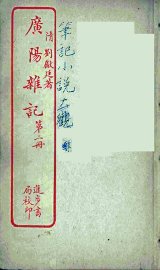 筆記小說大觀
清劉獻廷著
廣陽雜記第二冊
進步書局校印